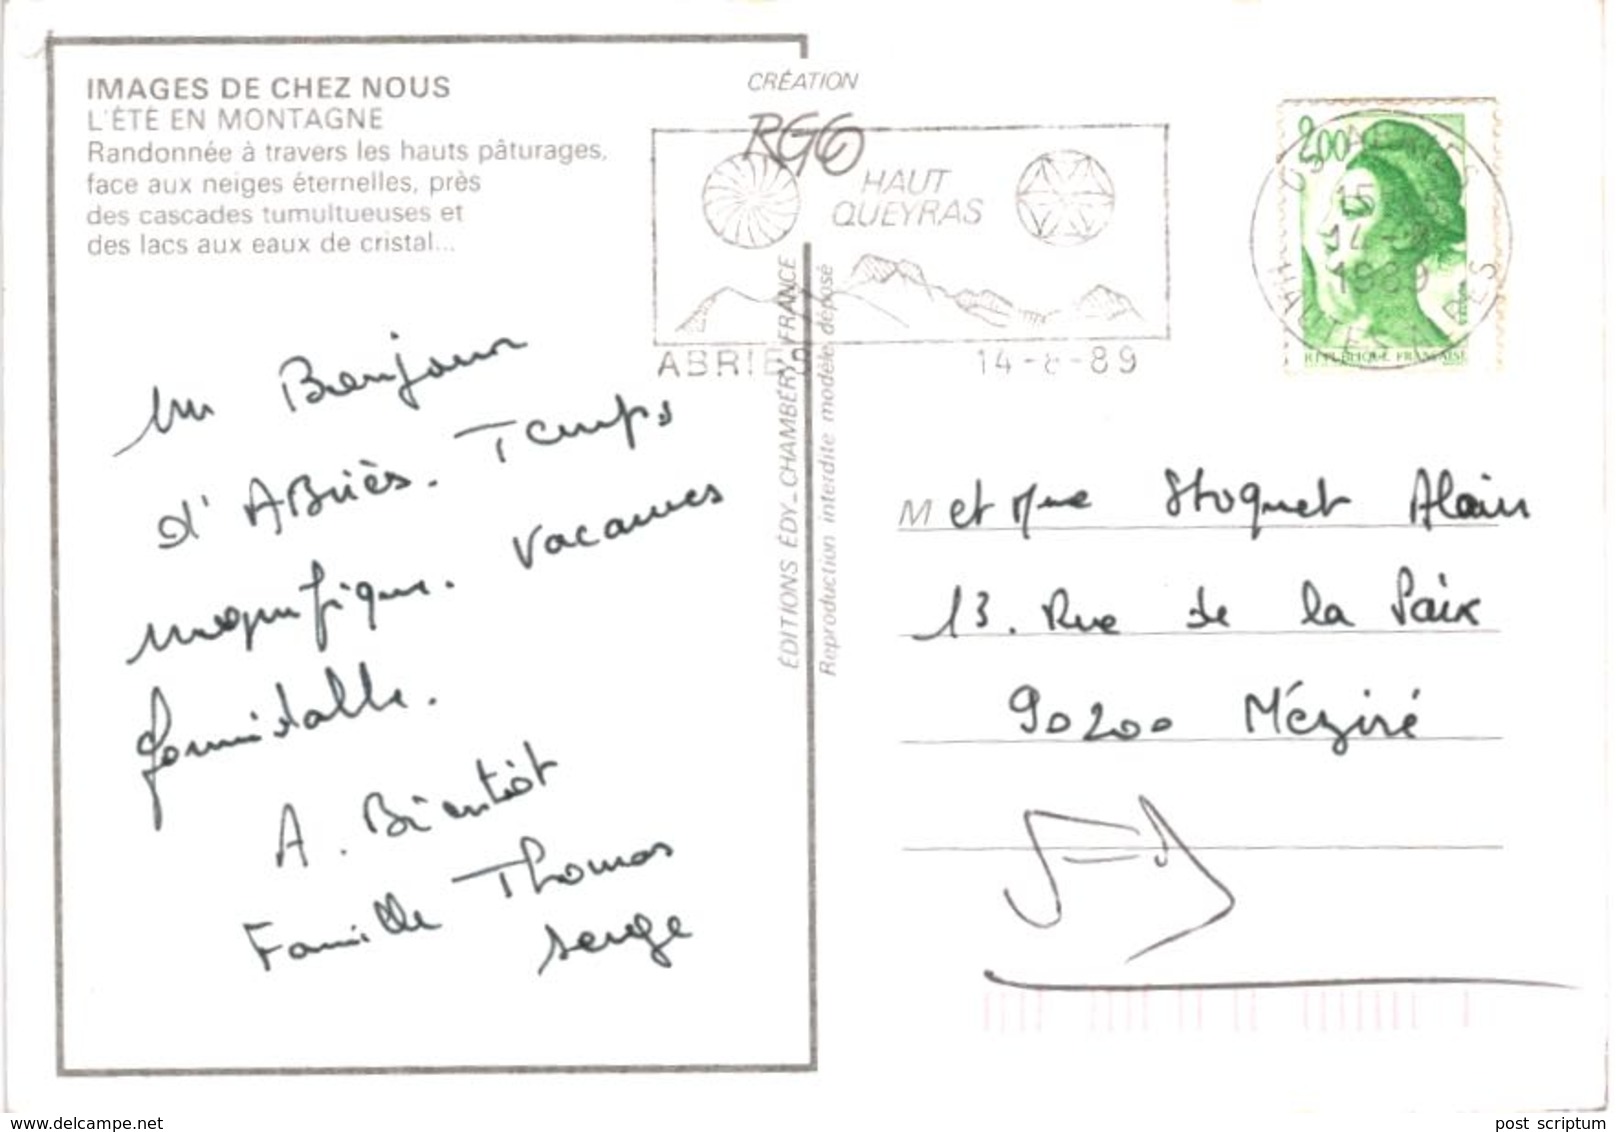 IMAGES DE CHEZ NOUS
L'ÉTÉ EN MONTAGNE
Randonnée à travers les hauts pâturages,
face aux neiges éternelles, près
des cascades tumultueuses et
des lacs aux eaux de cristal...
Un Bonjour
d'ABriès. Temps
magnifique. Vacances
formidable.
A. Bientôt
Famille Thomas
Serge
CRÉATION
RGO
HAUT
QUEYRAS
ABRIES
14-8-89
ÉDITIONS ÉDY_CHAMBÉRY FRANCE
Reproduction interdite modèle déposé
2,00
05 ABRIES
15
14-8
1989
HAUTES ALPES
REPUBLIQUE FRANÇAISE
M et Mme Stuquet Alain
13. Rue de la Paix
90200 Méziré
delcampe.net
post_scriptum